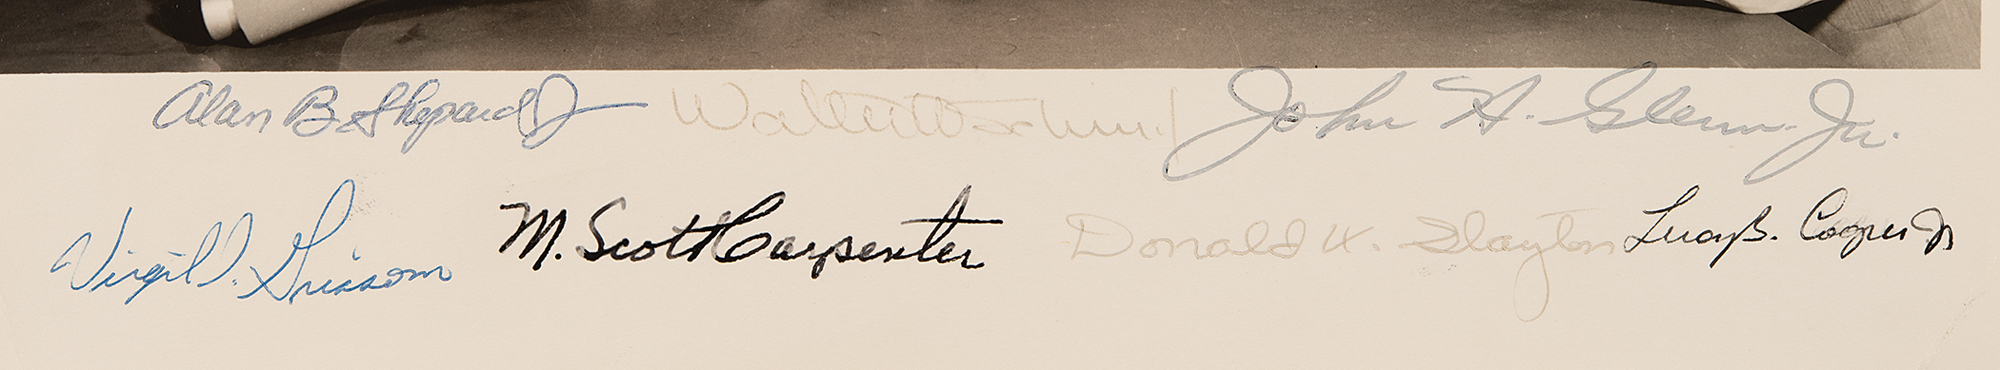 Alan B. Shepard Jr. Walter M. Schirra Jr. John H. Glenn Jr.
Virgil I. Grissom M. Scott Carpenter Donald K. Slayton Leroy G. Cooper Jr